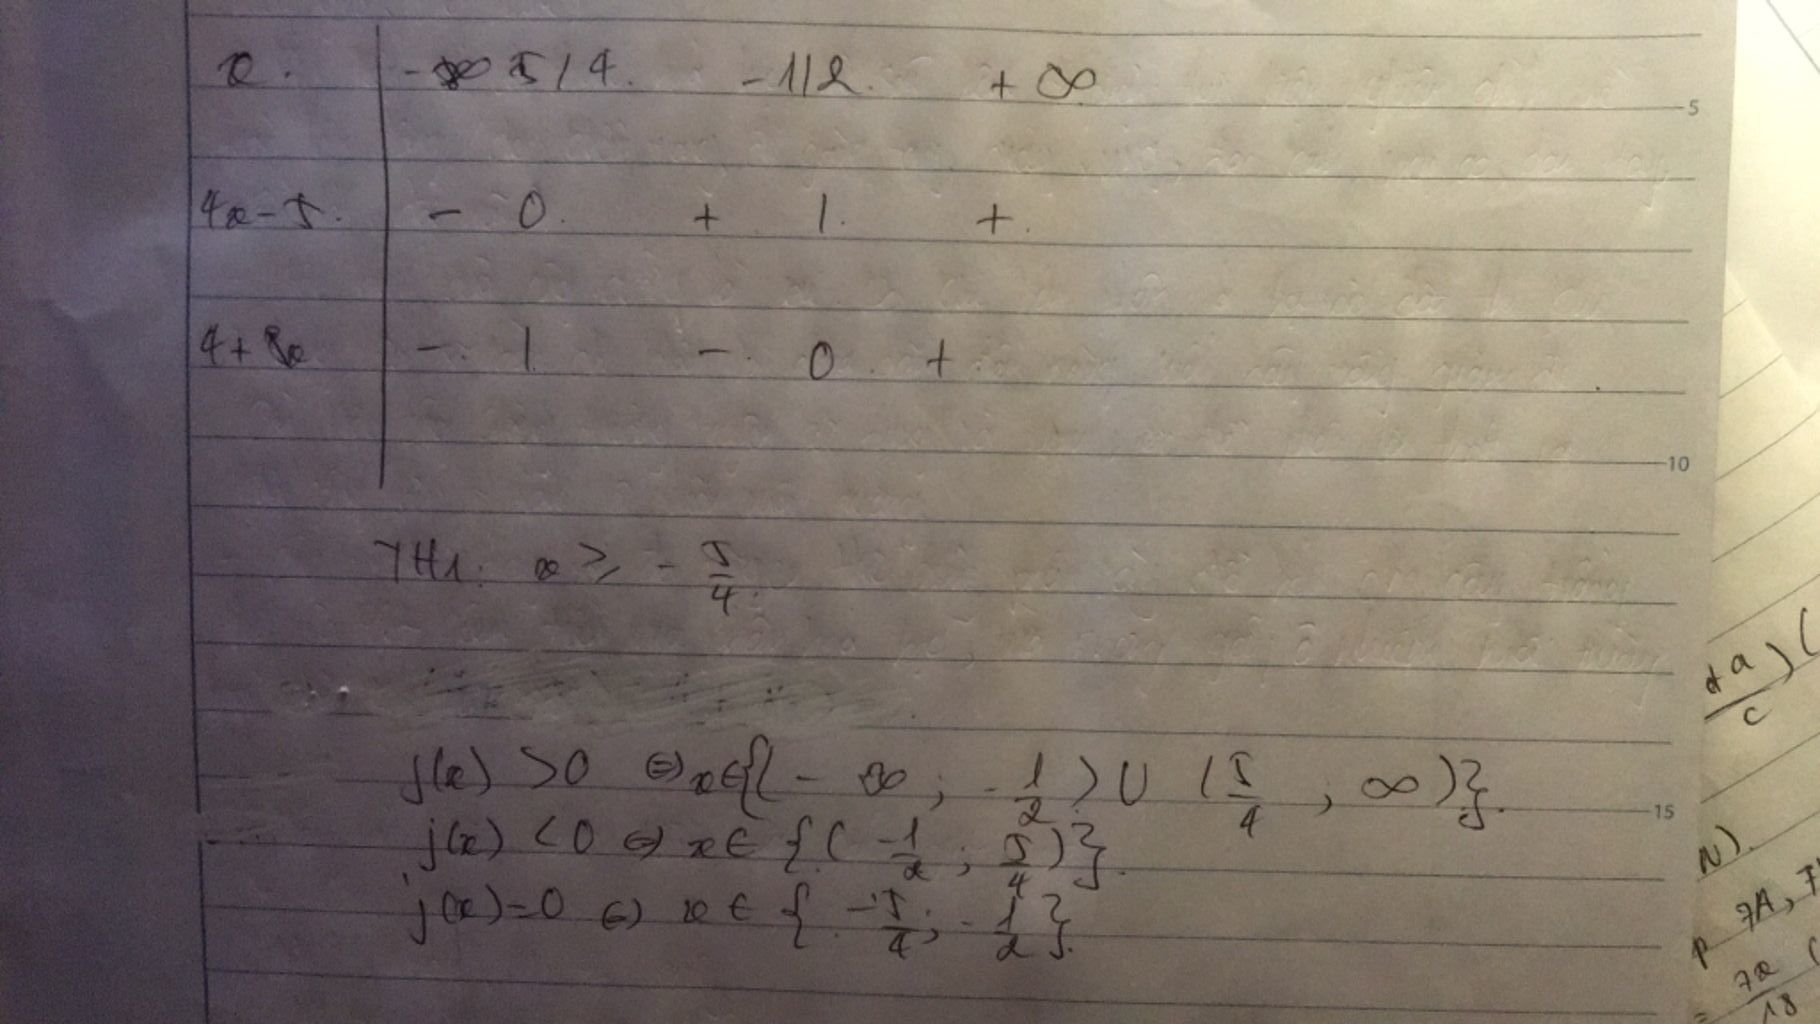 x. -∞ 5/4. -1/2. +∞
5
4x-5. - 0. + 1. +.
4+8x -. 1 -. 0. +
10
TH1: x ≥ - 5/4.
f(x) >0 ⇔ x∈{(- ∞ ; -1/2) ∪ (5/4 , ∞)}.
15
f(x) <0 ⇔ x∈ {( -1/2 ; 5/4)}.
f(x)=0 ⇔ x ∈ { -5/4; -1/2}.
+a/c) (
N).
7A,
7x/18 (